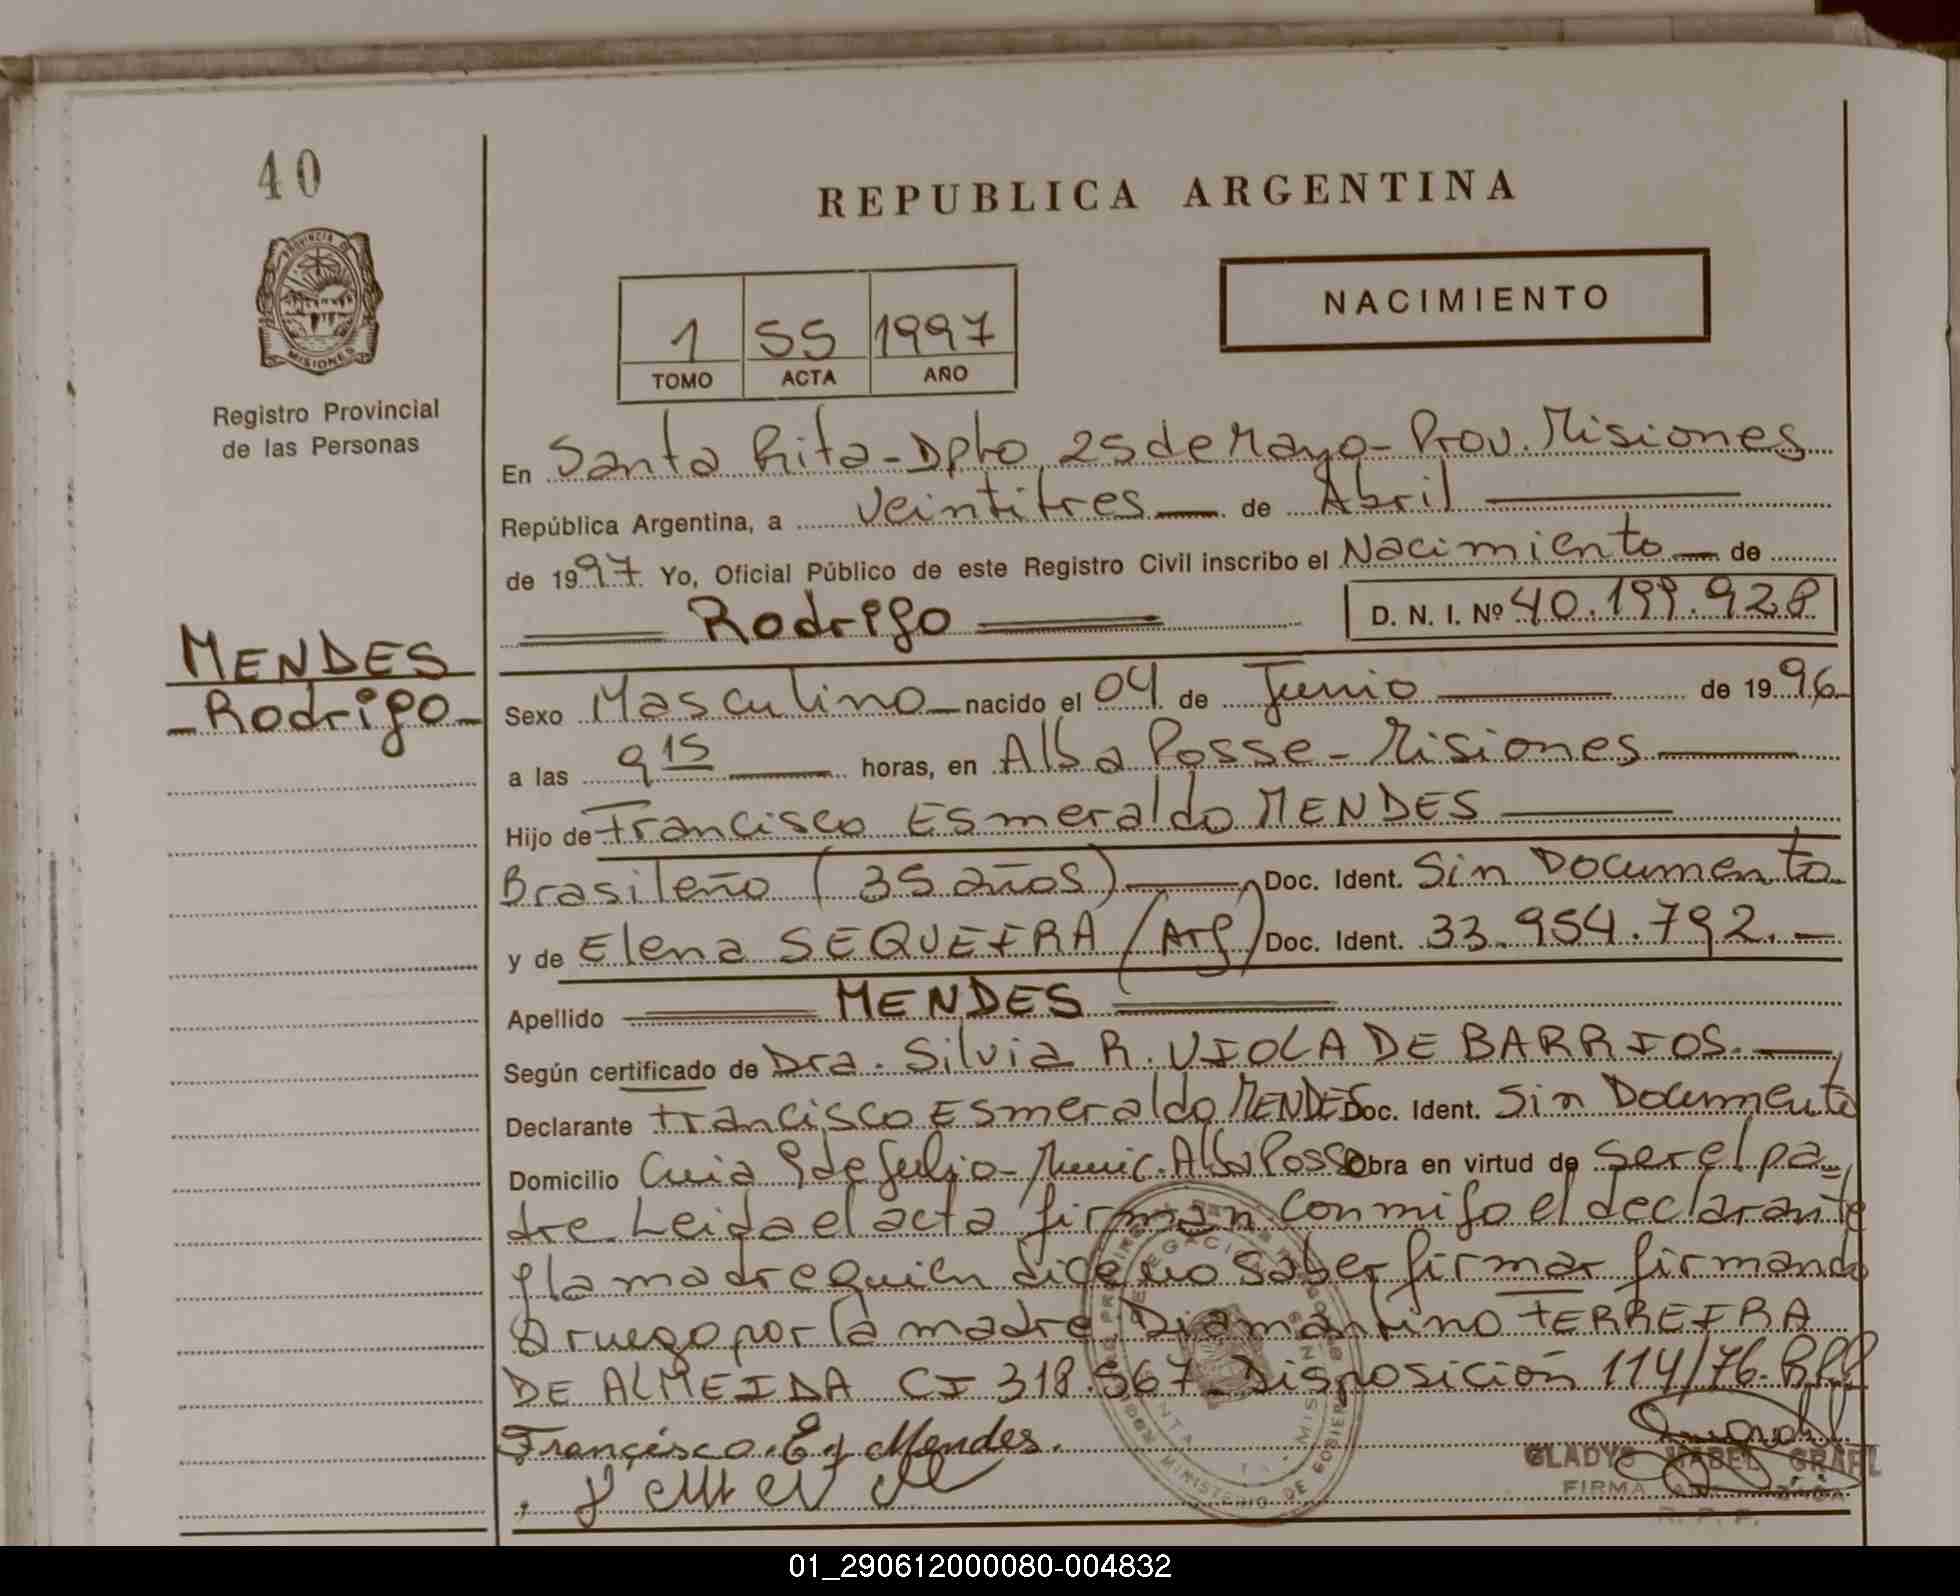 40
REPUBLICA ARGENTINA
PROVINCIA DE
MISIONES
NACIMIENTO
1 55 1997
TOMO ACTA AÑO
Registro Provincial
de las Personas
En Santa Rita - Dpto 25 de Mayo - Prov. Misiones
República Argentina, a veintitres de Abril
de 1997 Yo, Oficial Público de este Registro Civil inscribo el Nacimiento de
Rodrigo D. N. I. Nº 40.199.928
MENDES
- Rodrigo -
Sexo Masculino nacido el 04 de Junio de 1996
a las 9 15 horas, en Alba Posse - Misiones
Hijo de Francisco Esmeraldo MENDES
Brasileño (35 años) Doc. Ident. Sin Documento
y de Elena SEQUEIRA (Arg) Doc. Ident. 33.954.792. -
Apellido MENDES
Según certificado de Dra. Silvia R. VIOLA DE BARRIOS.
Declarante Francisco Esmeraldo MENDES Doc. Ident. Sin Documento
Domicilio Cuia 9 de Julio - Munic. Alba Posse Obra en virtud de ser el pa-
dre Leida el acta firman conmigo el declarante
y la madre quien dice no saber firmar firmando
a ruego por la madre Diamantino FERREIRA
DE ALMEIDA CI 318.567 - Disposición 114/76.
Francisco. E. Mendes.
GLADYS MABEL GRAEL
FIRMA
R. P. P.
MINISTERIO DE GOBIERNO
01_290612000080-004832